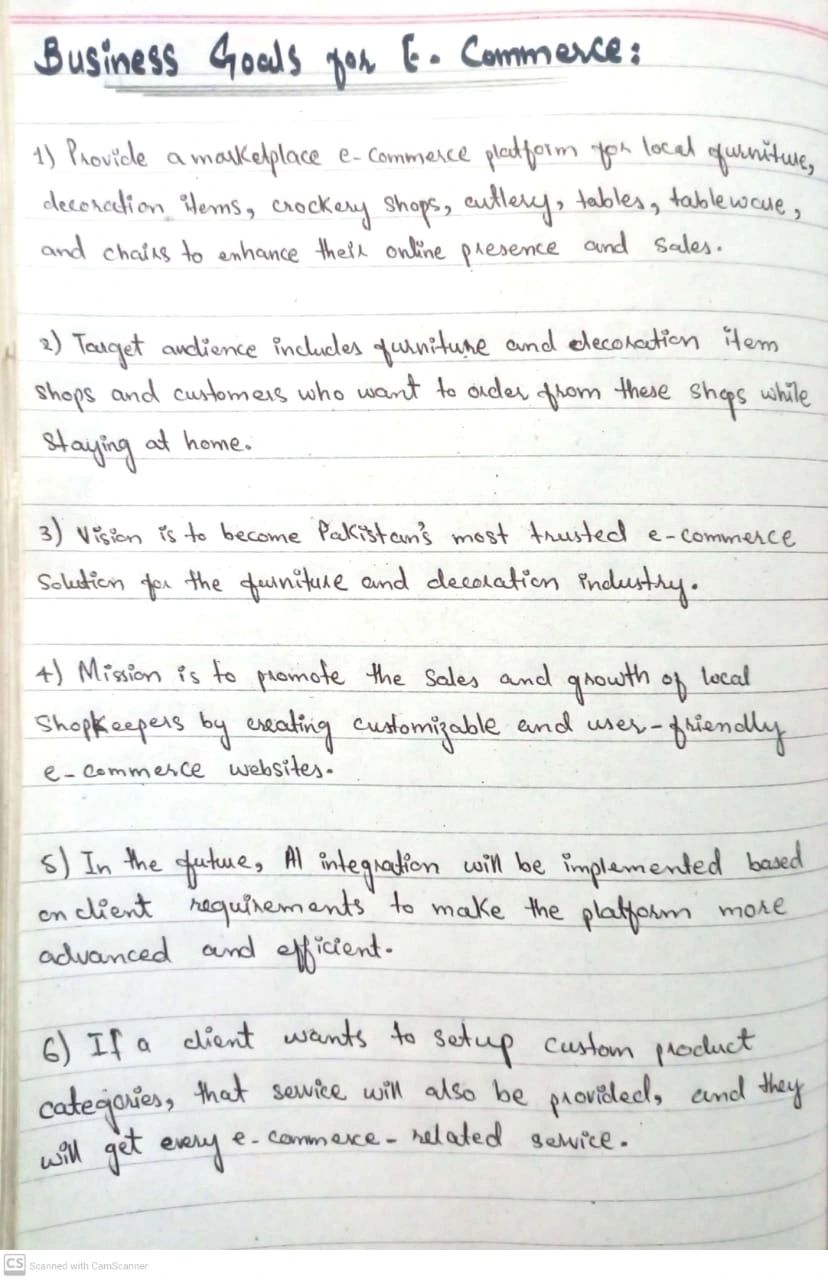 Business Goals for E-Commerce:
1) Provide a marketplace e-commerce platform for local furniture,
decoration items, crockery shops, cutlery, tables, tableware,
and chairs to enhance their online presence and sales.
2) Target audience includes furniture and decoration item
shops and customers who want to order from these shops while
staying at home.
3) Vision is to become Pakistan's most trusted e-commerce
Solution for the furniture and decoration industry.
4) Mission is to promote the sales and growth of local
Shopkeepers by creating customizable and user-friendly
e-commerce websites.
5) In the future, AI integration will be implemented based
on client requirements to make the platform more
advanced and efficient.
6) If a client wants to setup custom product
categories, that service will also be provided, and they
will get every e-commerce-related service.
CS Scanned with CamScanner